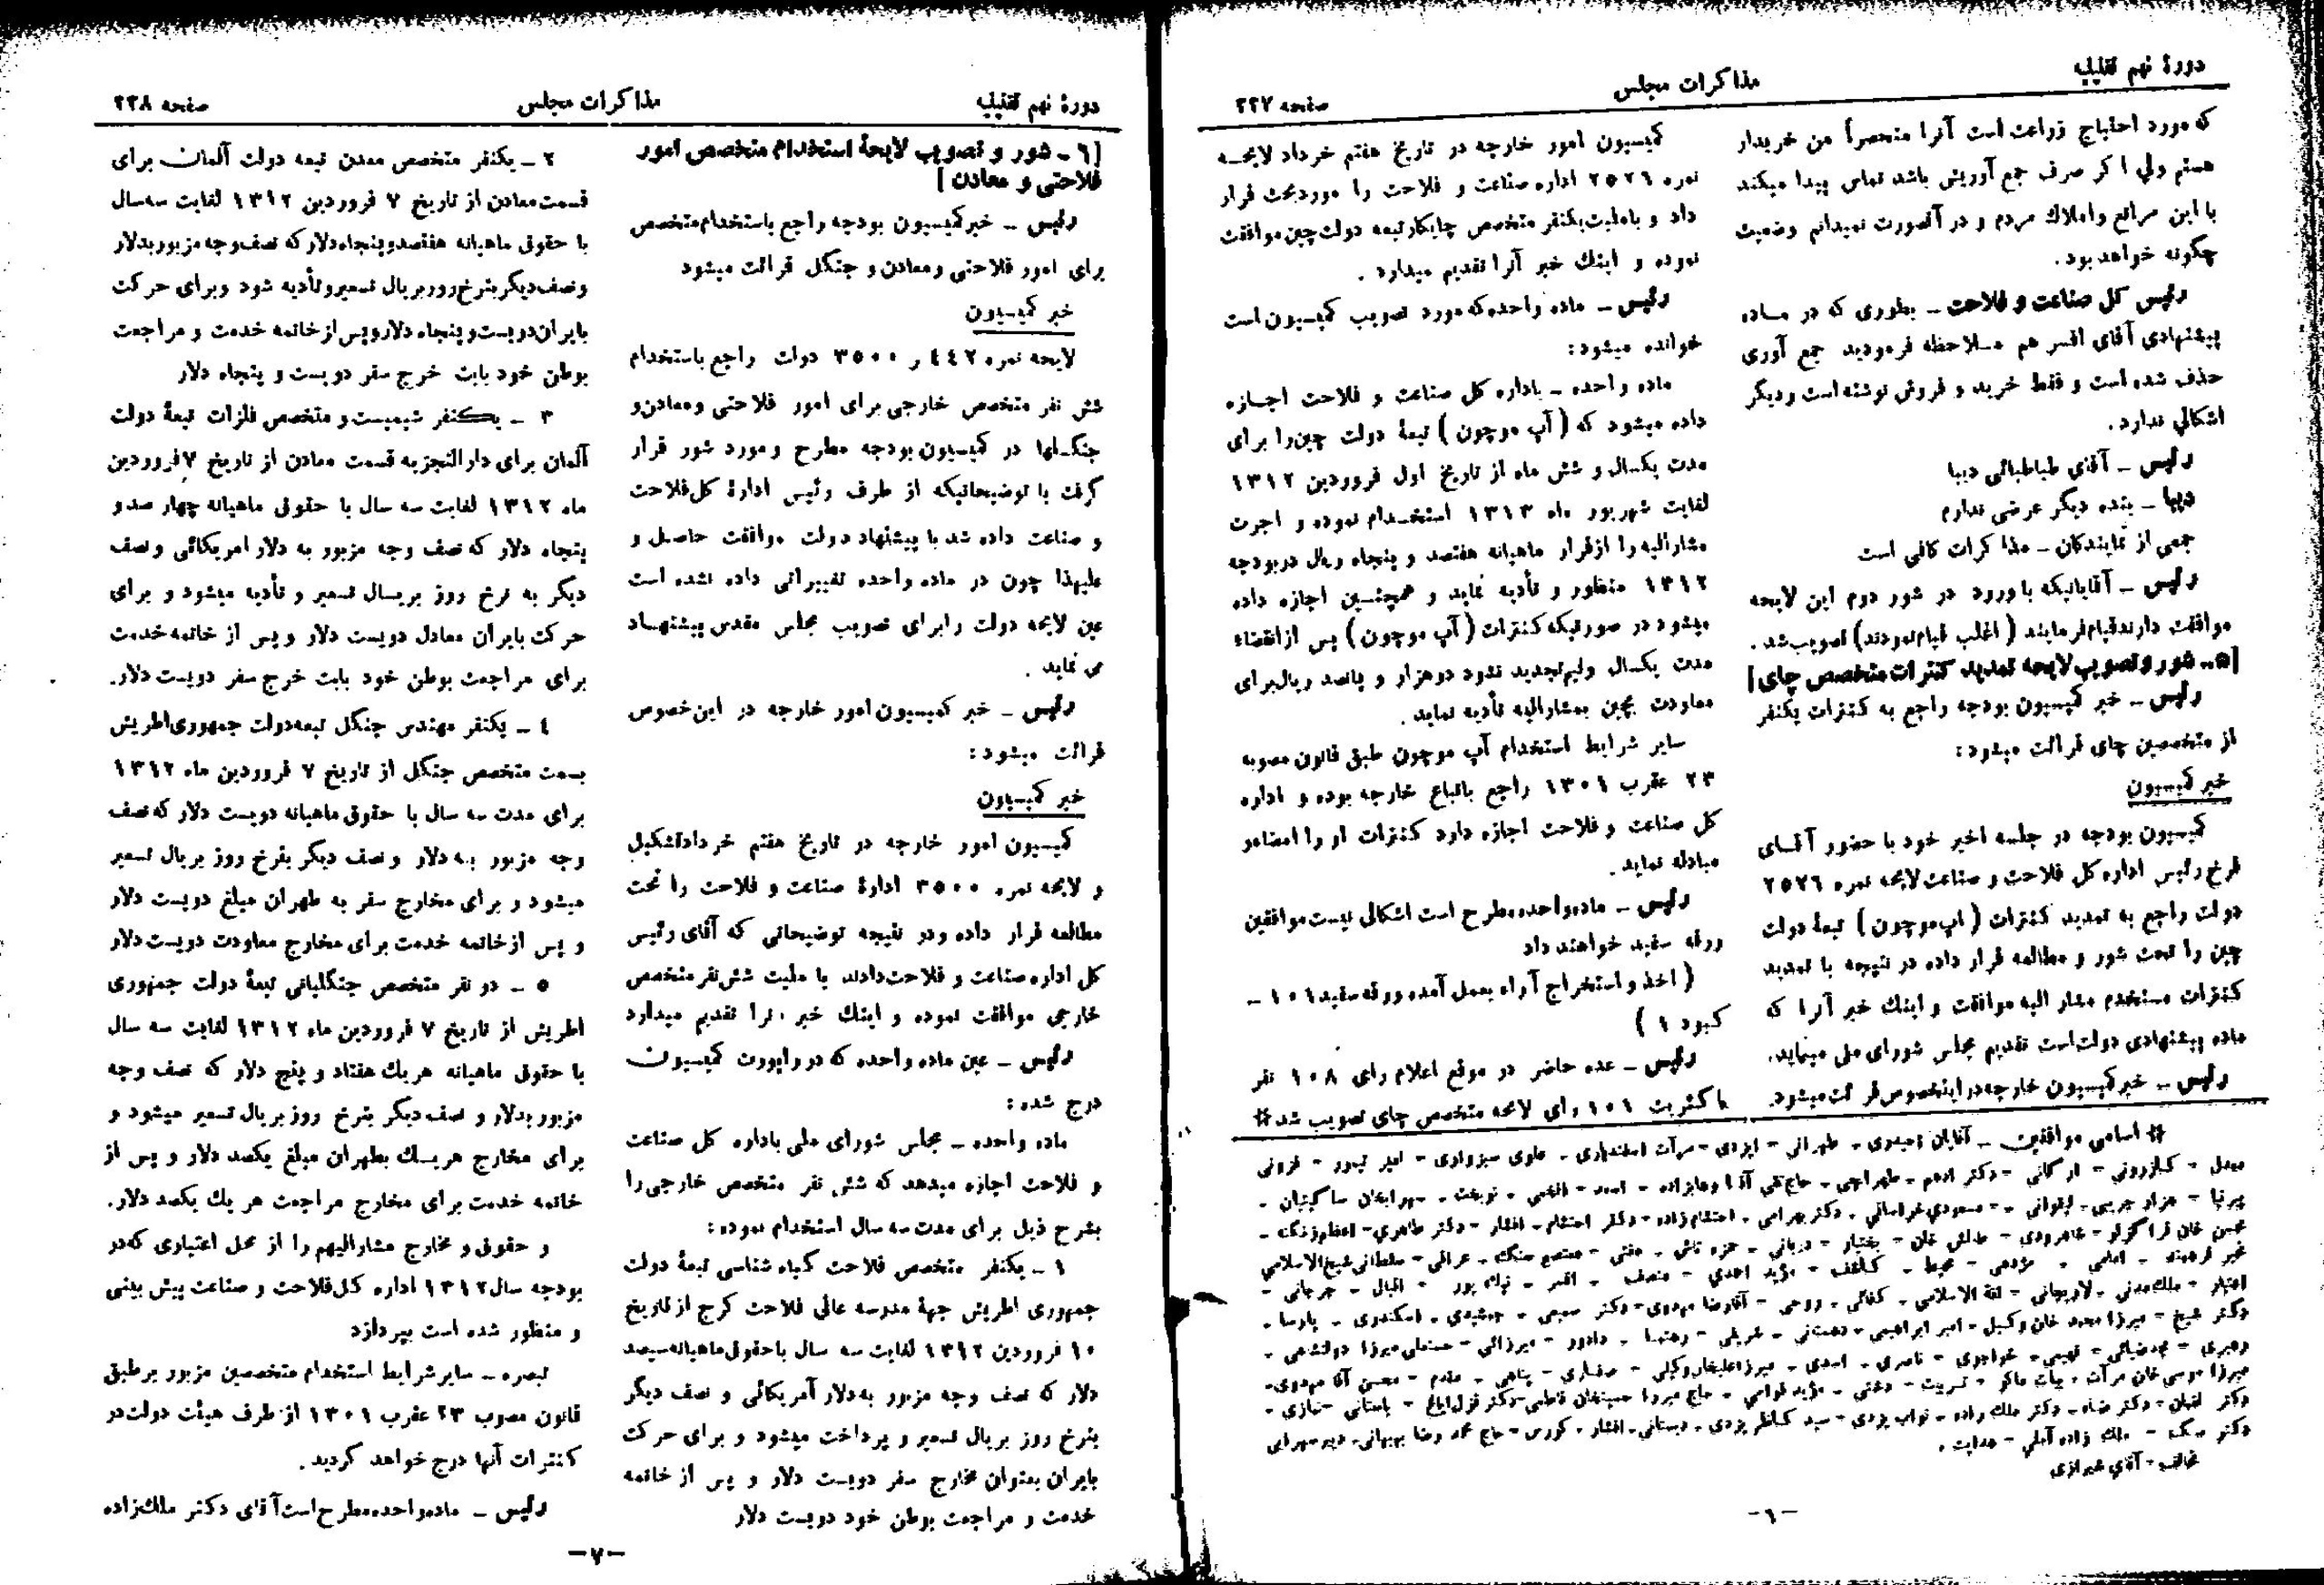 دورهٔ نهم تقنینیه
مذاکرات مجلس
صفحه ۲۲۷
که مورد احتیاج زراعت است آنرا منحصراً من خریدار
هستم ولی اگر صرف جمع آوریش باشد تماس پیدا میکند
با این مراتع و املاك مردم و در آنصورت نمیدانم وضعیت
چگونه خواهد بود.
رئیس کل صناعت و فلاحت ـ بطوری که در ماده
پیشنهادی آقای افسر هم ملاحظه فرمودید جمع آوری
حذف شده است و فقط خرید و فروش نوشته است و دیگر
اشکالی ندارد.
رئیس ـ آقای طباطبائی دیبا
دیبا ـ بنده دیگر عرضی ندارم
جمعی از نمایندگان ـ مذاکرات کافی است
رئیس ـ آقایانیکه با ورود در شور دوم این لایحه
موافقت دارند قیام فرمایند (اغلب قیام نمودند) تصویب شد.
[۵ـ شور و تصویب لایحه تمدید کنترات متخصص چای]
رئیس ـ خبر کمیسیون بودجه راجع به کنترات یکنفر
از متخصصین چای قرائت میشود:
خبر کمیسیون
کمیسیون بودجه در جلسه اخیر خود با حضور آقای
فرخ رئیس اداره کل فلاحت و صناعت لایحه نمره ۲۵۲۶
دولت راجع به تمدید کنترات (آپ موچون) تبعهٔ دولت
چین را تحت شور و مطالعه قرار داده در نتیجه با تمدید
کنترات مستخدم مشار الیه موافقت و اینك خبر آنرا که
ماده پیشنهادی دولت است تقدیم مجلس شورای ملی مینماید.
رئیس ـ خبر کمیسیون خارجه در اینخصوص قرائت میشود.
کمیسیون امور خارجه در تاریخ هفتم خرداد لایحه
نمره ۲۵۲۶ اداره صناعت و فلاحت را مورد بحث قرار
داد و باملیت یکنفر متخصص چایکار تبعه دولت چین موافقت
نموده و اینك خبر آنرا تقدیم میدارد.
رئیس ـ ماده واحده که مورد تصویب کمیسیون است
خوانده میشود:
ماده واحده ـ باداره کل صناعت و فلاحت اجازه
داده میشود که (آپ موچون) تبعهٔ دولت چین را برای
مدت یکسال و شش ماه از تاریخ اول فروردین ۱۳۱۲
لغایت شهریور ماه ۱۳۱۳ استخدام نموده و اجرت
مشارالیه را از قرار ماهیانه هفتصد و پنجاه ریال در بودجه
۱۳۱۲ منظور و تأدیه نماید و همچنین اجازه داده
میشود در صورتیکه کنترات (آپ موچون) پس از انقضاء
مدت یکسال ونیم تجدید نشود دو هزار و پانصد ریال برای
معاودت بچین بمشارالیه تأدیه نماید.
سایر شرایط استخدام آپ موچون طبق قانون مصوبه
۲۳ عقرب ۱۳۰۱ راجع باتباع خارجه بوده و اداره
کل صناعت و فلاحت اجازه دارد کنترات او را امضاء و
مبادله نماید.
رئیس ـ ماده واحده مطرح است اشکالی نیست موافقین
ورقه سفید خواهند داد
(اخذ و استخراج آراء بعمل آمده ورقه سفید ۱۰۱ ـ
کبود ۱)
رئیس ـ عده حاضر در موقع اعلام رای ۱۰۸ نفر
باکثریت ۱۰۱ رأی لایحه متخصص چای تصویب شد#
# اسامی موافقین ـ آقایان وحیدی ـ طهرانی - ایزدی - مرآت اسفندیاری ـ علوی سبزواری - امیر تیمور - قزونی
معدل - کازرونی - ارگانی - دکتر ادهم ـ طهرانچی ـ حاج تقی آقا وهابزاده - اسعد - نوبخت ـ سهرابخان ساگینیان ـ
پیرنیا - هزار جریبی ـ لیقوانی - مسعودی خراسانی ـ دکتر بهرامی ـ احتشام زاده - دکتر احتشام ـ افشار - دکتر طاهری - اعظم زنگنه ـ
محسن خان قراگزلو - شاهرودی - طالش خان - بختیار - دربانی - حمزه تاش ـ مفتی - معتصم سنگ ـ عراقی - سلطانی شیخ الاسلامی
خبیر فرهمند ـ امامی ـ مؤدهی - محیط ـ کاشف - مؤید احمدی - منصف ـ افسر - نیك پور - اقبال - جرجانی -
اعتبار - ملك مدنی ـ لاریجانی - ثقة الاسلامی ـ کفائی ـ روحی - آقا رضا مهدوی - دکتر سمیعی - جمشیدی ـ اسکندری ـ پارسا ـ
دکتر شیخ - میرزا محمد خان وکیل - امیر ابراهیمی - دشتی - شریفی - رهنما ـ دادور - میرزائی - دولتشاهی -
رهبری - فهیمی ـ خواجوی - ناصری ـ اسدی ـ میرزا علیخان وکیلی - صفاری - پناهی ـ مقدم - محسن آقا مهدوی -
میرزا موسی خان مرآت ـ بیات ماکو - تربیت - دشتی - مؤید قوامی - حاج میرزا حسینخان فاطمی - دکتر قزل ایاغ - یاسائی - نیازی -
دکتر لقمان - دکتر ضیاء ـ دکتر ملك زاده ـ نواب یزدی - سید کاظم یزدی ـ دبستانی ـ افشار ـ کورس - حاج محمد رضا بهبهانی ـ دبیر سهرابی
دکتر سنگ - ملك زاده آملی - هدایت.
مخالف - آقای شیرازی
-۶-
دورهٔ نهم تقنینیه
مذاکرات مجلس
صفحه ۲۲۸
[۶ ـ شور و تصویب لایحهٔ استخدام متخصص امور
فلاحتی و معادن]
رئیس ـ خبر کمیسیون بودجه راجع باستخدام متخصص
برای امور فلاحتی و معادن و جنگل قرائت میشود
خبر کمیسیون
لایحه نمره ۴۴۲ ر ۳۵۰۰ دولت راجع باستخدام
شش نفر متخصص خارجی برای امور فلاحتی و معادن و
جنگلها در کمیسیون بودجه مطرح و مورد شور قرار
گرفت با توضیحاتیکه از طرف رئیس ادارهٔ کل فلاحت
و صناعت داده شد با پیشنهاد دولت موافقت حاصل و
علیهذا چون در ماده واحده تغییراتی داده نشده است
عین لایحه دولت را برای تصویب مجلس مقدس پیشنهاد
می نماید.
رئیس ـ خبر کمیسیون امور خارجه در این خصوص
قرائت میشود:
خبر کمیسیون
کمیسیون امور خارجه در تاریخ هفتم خرداد تشکیل
و لایحه نمره ۳۵۰۰ ادارهٔ صناعت و فلاحت را تحت
مطالعه قرار داده و در نتیجه توضیحاتی که آقای رئیس
کل اداره صناعت و فلاحت دادند با ملیت شش نفر متخصص
خارجی موافقت نموده و اینك خبر آنرا تقدیم میدارد
رئیس ـ عین ماده واحده که در راپورت کمیسیون
درج شده:
ماده واحده ـ مجلس شورای ملی باداره کل صناعت
و فلاحت اجازه میدهد که شش نفر متخصص خارجی را
بشرح ذیل برای مدت سه سال استخدام نموده:
۱ ـ یکنفر متخصص فلاحت گیاه شناسی تبعهٔ دولت
جمهوری اطریش جهة مدرسه عالی فلاحت کرج از تاریخ
۱۰ فروردین ۱۳۱۲ لغایت سه سال با حقوق ماهیانه سیصد
دلار که نصف وجه مزبور به دلار آمریکائی و نصف دیگر
بنرخ روز بریال تسعیر و پرداخت میشود و برای حرکت
بایران بعنوان مخارج سفر دویست دلار و پس از خاتمه
خدمت و مراجعت بوطن خود دویست دلار
۲ ـ یکنفر متخصص معدن تبعه دولت آلمان برای
قسمت معادن از تاریخ ۷ فروردین ۱۳۱۲ لغایت سه سال
با حقوق ماهیانه هفتصد و پنجاه دلار که نصف وجه مزبور بدلار
و نصف دیگر بنرخ روز بریال تسعیر و تأدیه شود و برای حرکت
بایران دویست و پنجاه دلار و پس از خاتمه خدمت و مراجعت
بوطن خود بابت خرج سفر دویست و پنجاه دلار
۳ ـ یکنفر شیمیست و متخصص فلزات تبعهٔ دولت
آلمان برای دارالتجزیه قسمت معادن از تاریخ ۷ فروردین
ماه ۱۳۱۲ لغایت سه سال با حقوق ماهیانه چهار صد و
پنجاه دلار که نصف وجه مزبور به دلار امریکائی و نصف
دیگر به نرخ روز بریال تسعیر و تأدیه میشود و برای
حرکت بایران معادل دویست دلار و پس از خاتمه خدمت
برای مراجعت بوطن خود بابت خرج سفر دویست دلار.
۴ ـ یکنفر مهندس جنگل تبعه دولت جمهوری اطریش
بسمت متخصص جنگل از تاریخ ۷ فروردین ماه ۱۳۱۲
برای مدت سه سال با حقوق ماهیانه دویست دلار که نصف
وجه مزبور به دلار و نصف دیگر بنرخ روز بریال تسعیر
میشود و برای مخارج سفر به طهران مبلغ دویست دلار
و پس از خاتمه خدمت برای مخارج معاودت دویست دلار
۵ ـ دو نفر متخصص جنگلبانی تبعهٔ دولت جمهوری
اطریش از تاریخ ۷ فروردین ماه ۱۳۱۲ لغایت سه سال
با حقوق ماهیانه هریك هفتاد و پنج دلار که نصف وجه
مزبور بدلار و نصف دیگر بنرخ روز بریال تسعیر میشود و
برای مخارج هریك بطهران مبلغ یکصد دلار و پس از
خاتمه خدمت برای مخارج مراجعت هر یك یکصد دلار.
و حقوق و مخارج مشارالیهم را از محل اعتباری که در
بودجه سال ۱۳۱۲ اداره کل فلاحت و صناعت پیش بینی
و منظور شده است بپردازد
تبصره ـ سایر شرایط استخدام متخصصین مزبور بر طبق
قانون مصوب ۲۳ عقرب ۱۳۰۱ از طرف هیئت دولت در
کنترات آنها درج خواهد گردید.
رئیس ـ ماده واحده مطرح است آقای دکتر ملك زاده
-۷-